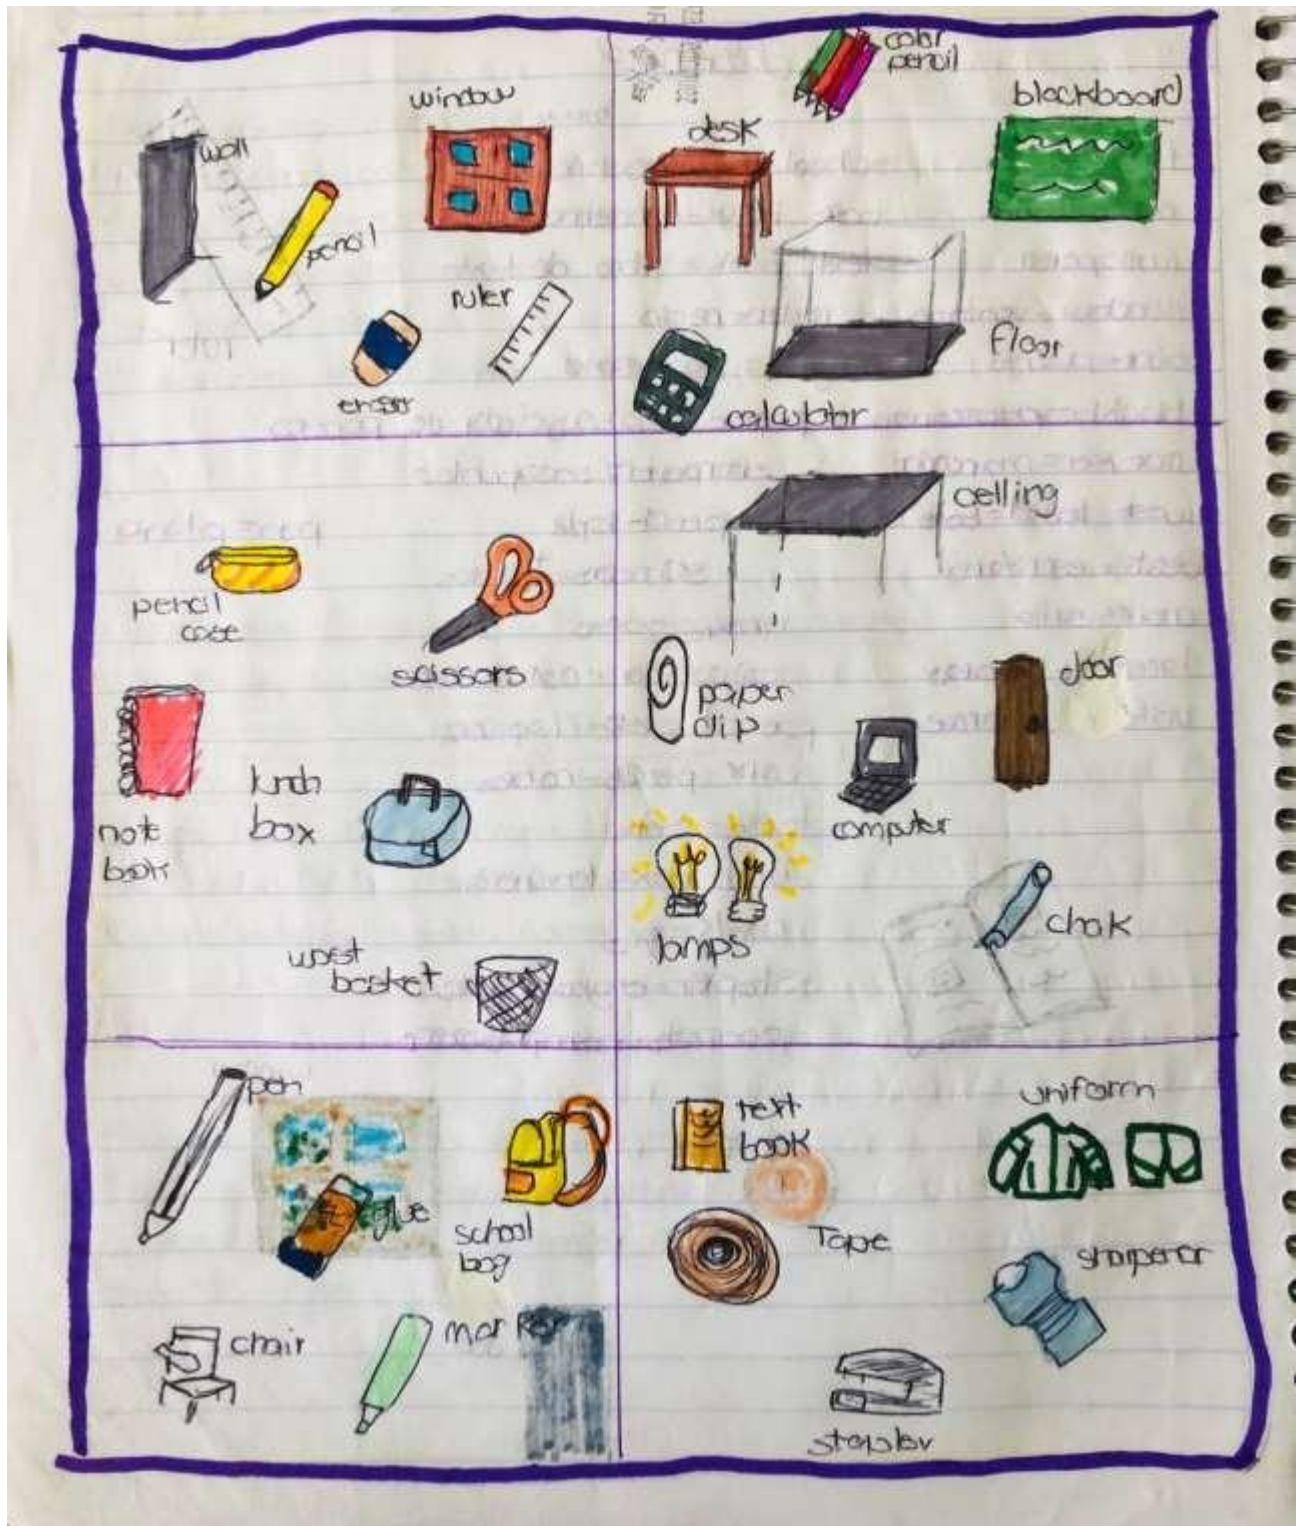 wall
window
pencil
ruler
eraser
color
pencil
desk
blackboard
floor
calculator
pencil
case
scissors
note
book
lunch
box
wast
basket
celling
paper
clip
door
computer
lamps
chak
pen
glue
school
bag
chair
marker
text
book
uniform
Tape
sharpener
stapler